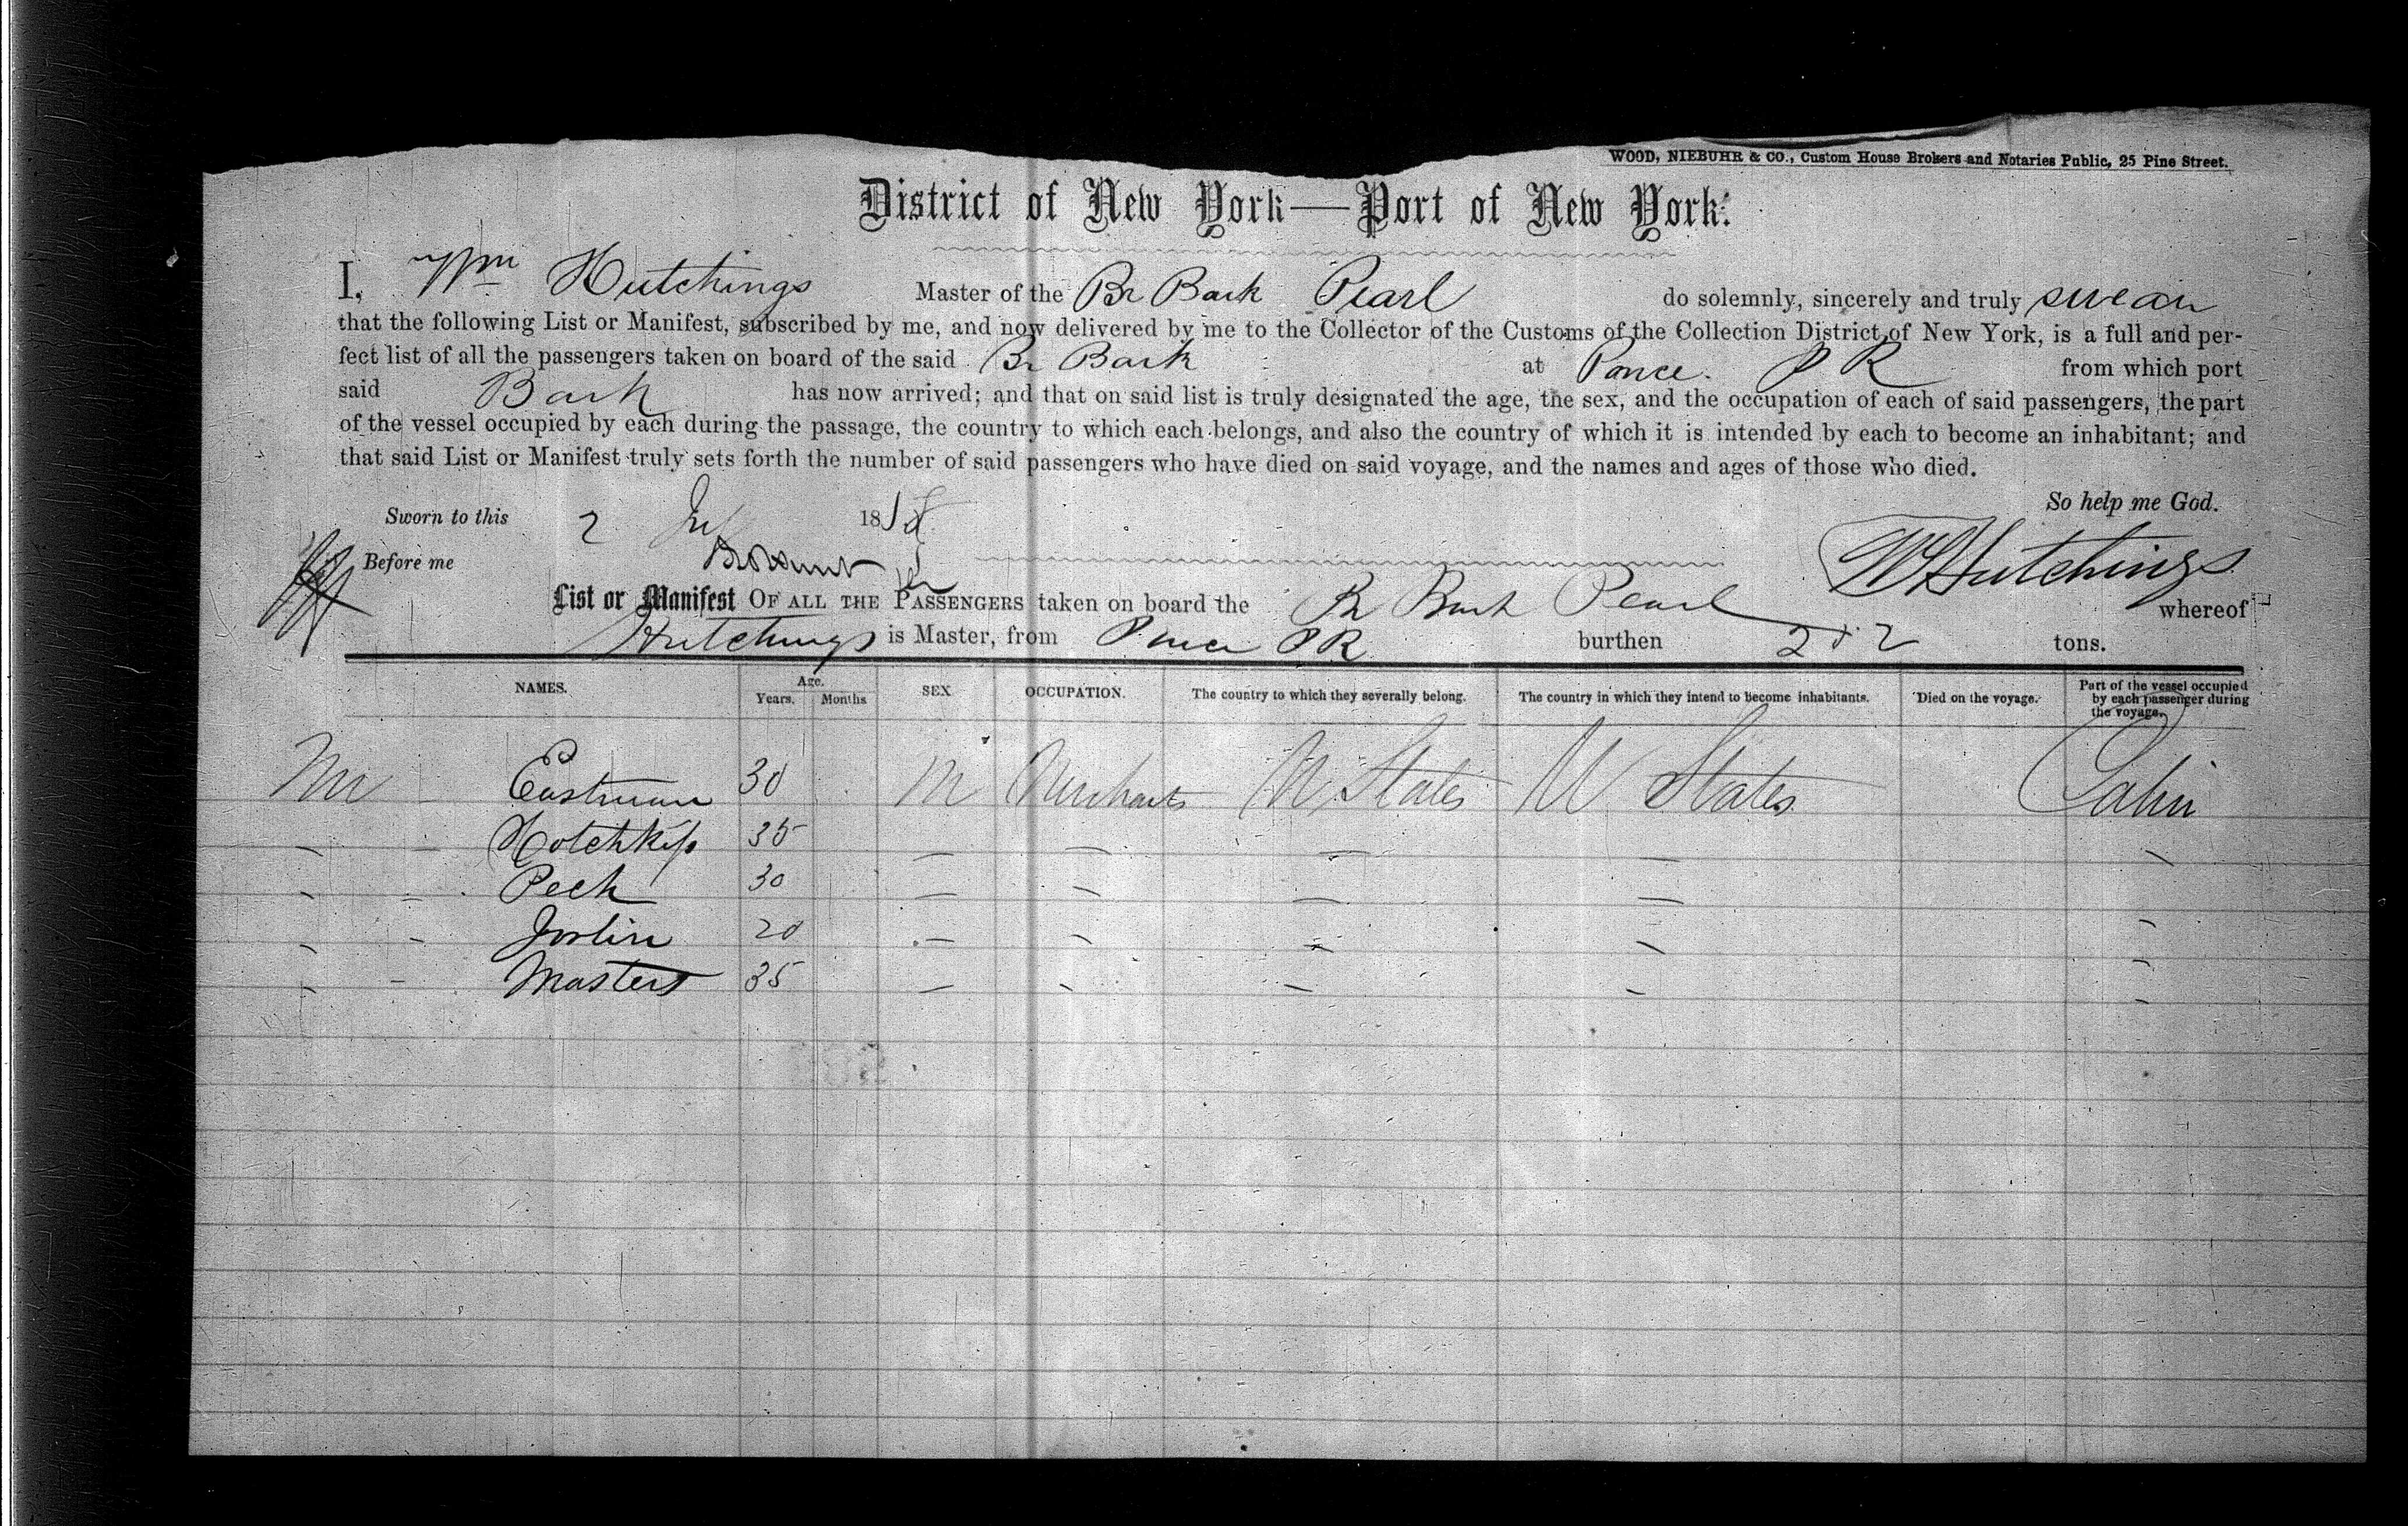 WOOD, NIEBUHR & CO., Custom House Brokers and Notaries Public, 25 Pine Street.
District of New York—Port of New York.
I, Wm Hutchings Master of the Br Bark Pearl do solemnly, sincerely and truly swear
that the following List or Manifest, subscribed by me, and now delivered by me to the Collector of the Customs of the Collection District of New York, is a full and per-
fect list of all the passengers taken on board of the said Br Bark at Ponce. P R from which port
said Bark has now arrived; and that on said list is truly designated the age, the sex, and the occupation of each of said passengers, the part
of the vessel occupied by each during the passage, the country to which each belongs, and also the country of which it is intended by each to become an inhabitant; and
that said List or Manifest truly sets forth the number of said passengers who have died on said voyage, and the names and ages of those who died.
So help me God.
Sworn to this 2 18
Before me WHutchings
List or Manifest OF ALL THE PASSENGERS taken on board the Br Bark Pearl whereof
Hutchings is Master, from Ponce PR burthen tons.
NAMES. Age. Years. Months SEX OCCUPATION. The country to which they severally belong. The country in which they intend to become inhabitants. Died on the voyage. Part of the vessel occupied by each passenger during the voyage.
Mr Eastman 30 M Merchants U States U States Cabin
– – Hotchkiss 35 – – – – –
– – Peck 30 – – – – –
– – Joslin 20 – – – – –
– – Masters 35 – – – – –